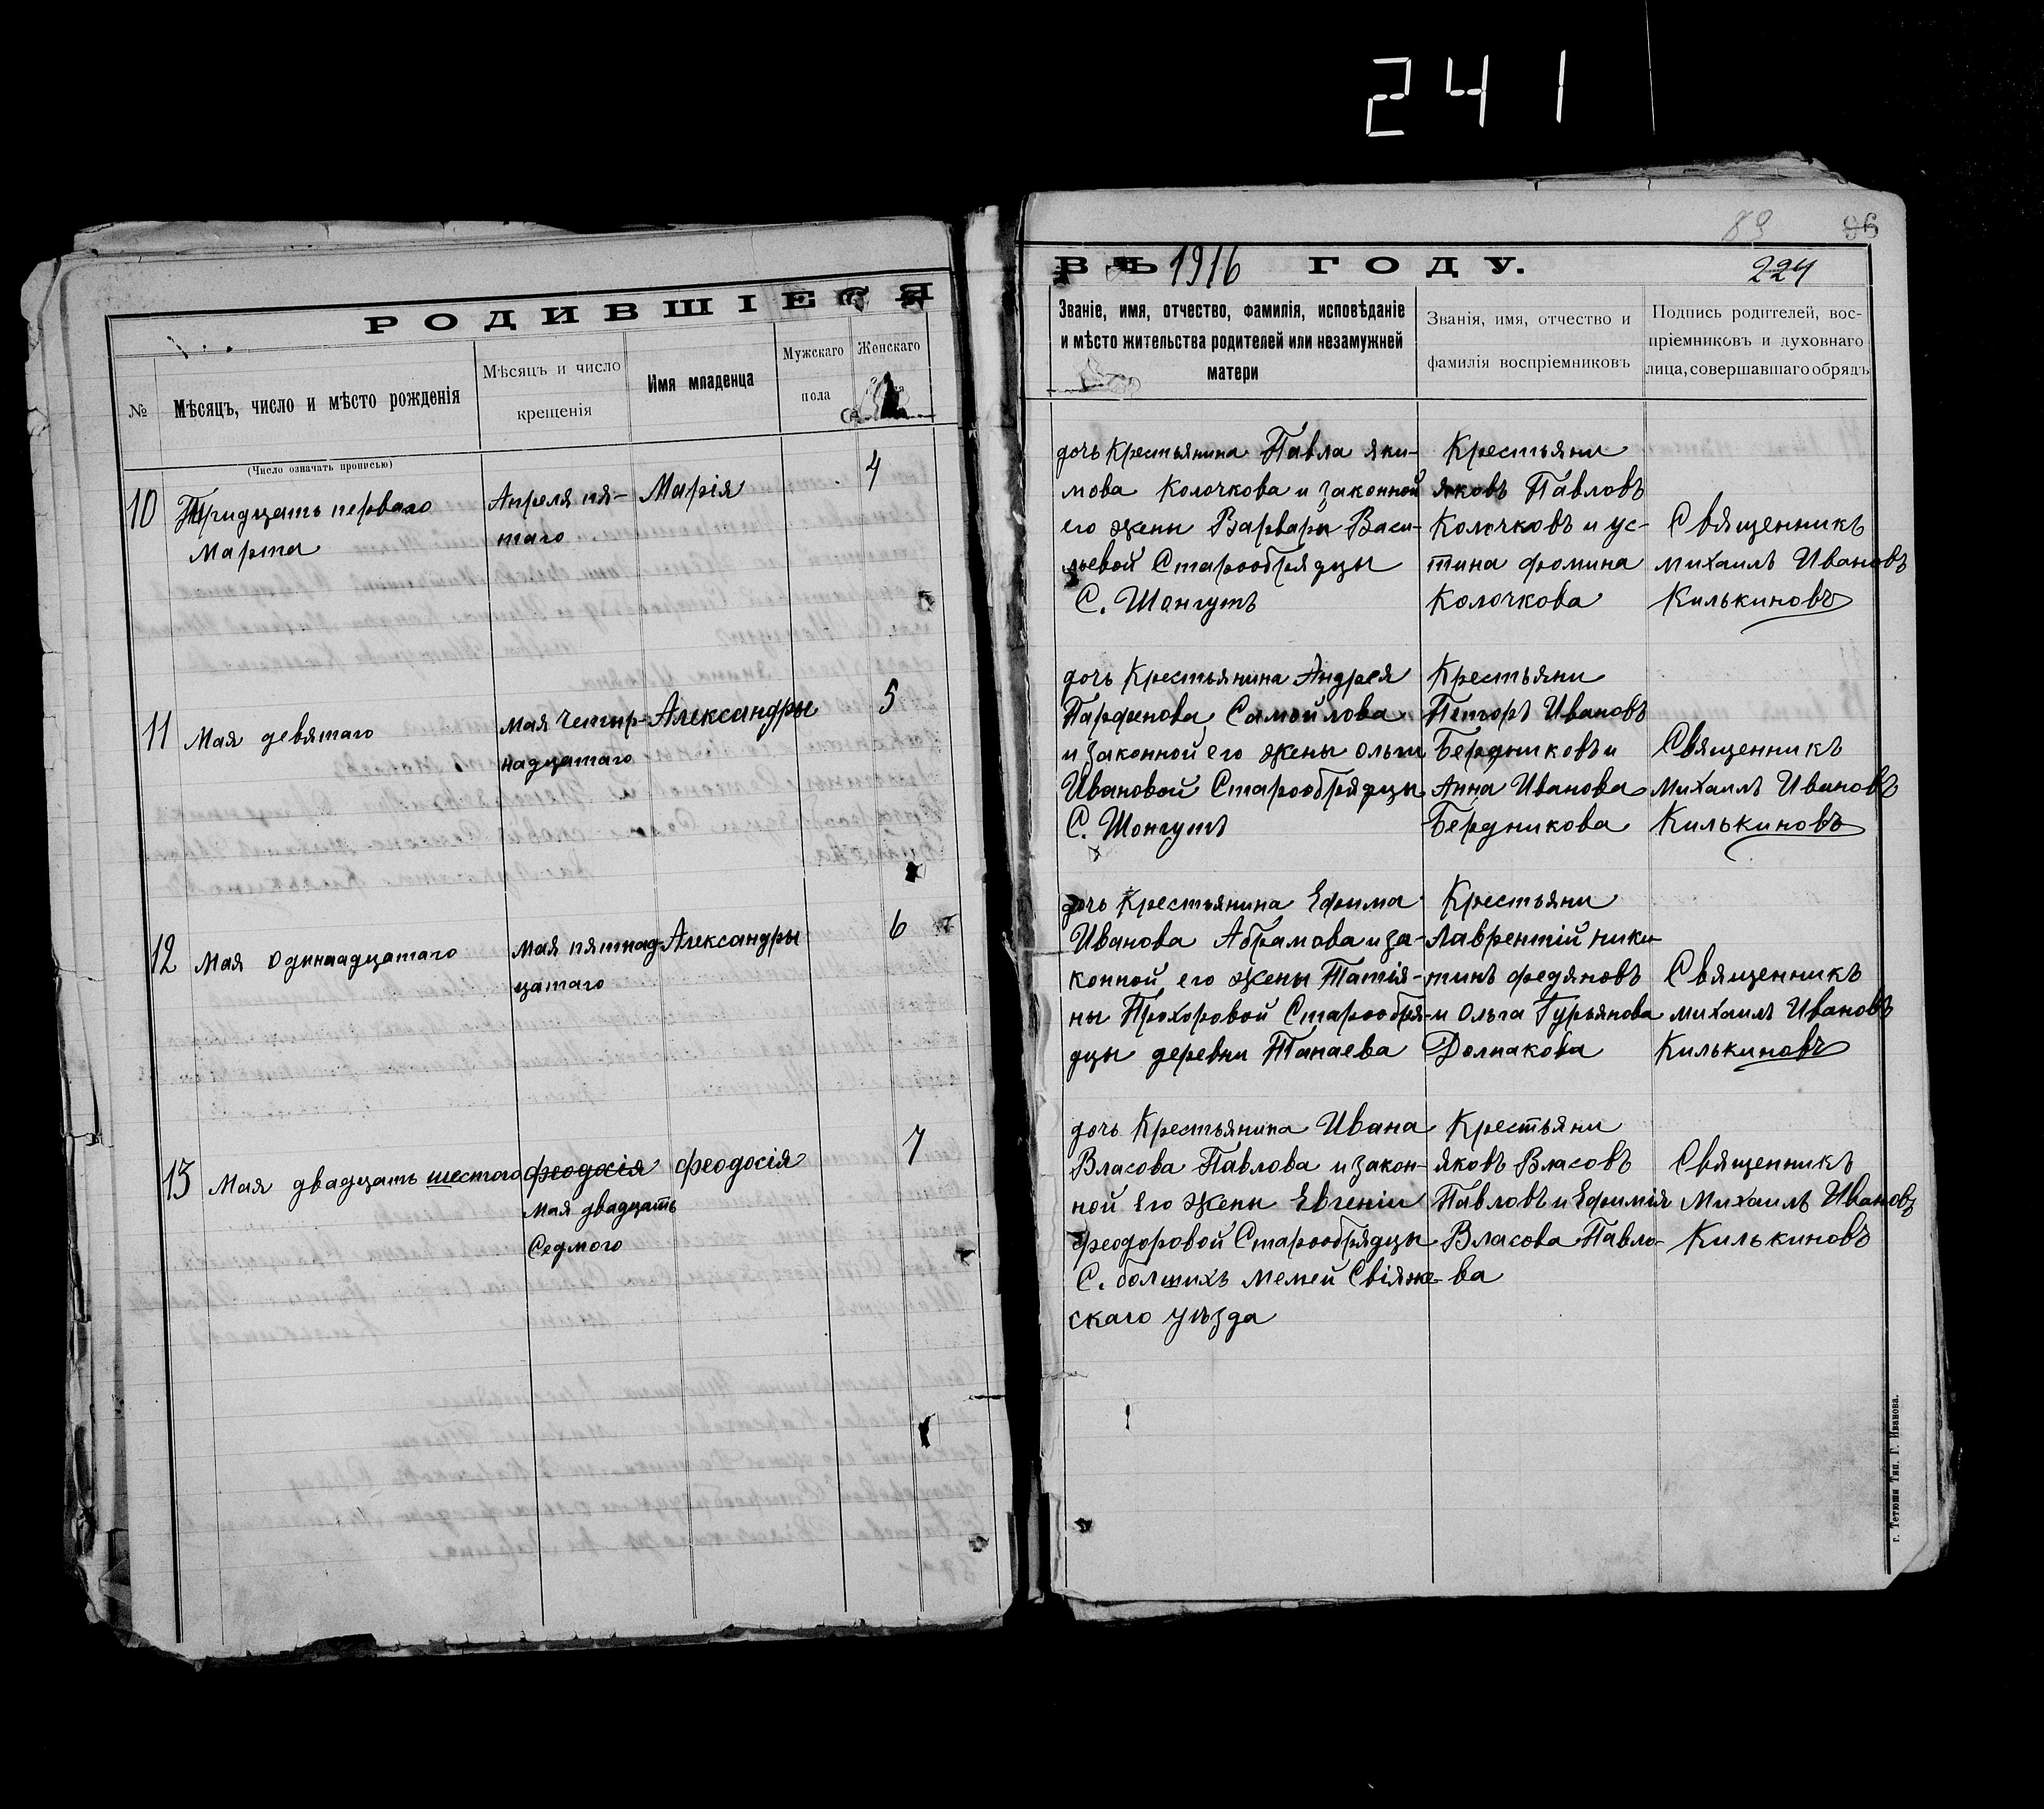 241
89
96
РОДИВШІЕСЯ
ВЪ 1916 ГОДУ.
224
№
Мѣсяцъ, число и мѣсто рожденія
(Число означать прописью)
Мѣсяцъ и число
крещенія
Имя младенца
Мужскаго
пола
Женскаго
Званіе, имя, отчество, фамилія, исповѣданіе
и мѣсто жительства родителей или незамужней
матери
Званія, имя, отчество и
фамилія воспріемниковъ
Подпись родителей, вос-
пріемниковъ и духовнаго
лица, совершавшаго обрядъ
10
Тридцать перваго
Марта
Апреля пя-
таго
Марія
4
дочь Крестьянина Павла Яки-
мова Колочкова и законной
его жены Варвары Васи-
льевой Старообрядцы
С. Шонгутъ
Крестьяни
яковъ Павловъ
Колочковъ и ус-
тина фомина
Колочкова
Священникъ
михаилъ Ивановъ
Килькиновъ
11
Мая девятаго
мая четыр-
надцатаго
Александры
5
дочь Крестьянина Андрея
Парфенова Самойлова
и законной его жены ольги
Ивановой Старообрядцы
С. Шонгутъ
Крестьяни
Пеигоръ Ивановъ
Бердниковъ и
Анна Иванова
Бердникова
Священникъ
михаилъ Ивановъ
Килькиновъ
12
Мая Одинаадцатаго
мая пятнад-
цатаго
Александры
6
дочь Крестьянина Ефима
Иванова Абрамова и за-
конной его жены Татія-
ны Прохоровой Старообря-
дцы деревни Танаева
Крестьяни
Лаврентій ники-
тинъ федяновъ
и Ольга Гурьянова
Долнакова
Священникъ
михаилъ Ивановъ
Килькиновъ
13
Мая двадцать шестого
феодосія
Мая двадцать
Седмого
феодосія
7
дочь Крестьянина Ивана
Власова Павлова и закон-
ной Его жены Евгеніи
феодоровой Старообрядцы
С. болшихъ мемей Свіяж-
скаго уѣзда
Крестьяни
яковъ Власовъ
Павловъ и Ефимія
Власова Павло-
ва
Священникъ
Михаилъ Ивановъ
Килькиновъ
г. Тетюши Тип. Г. Иванова.